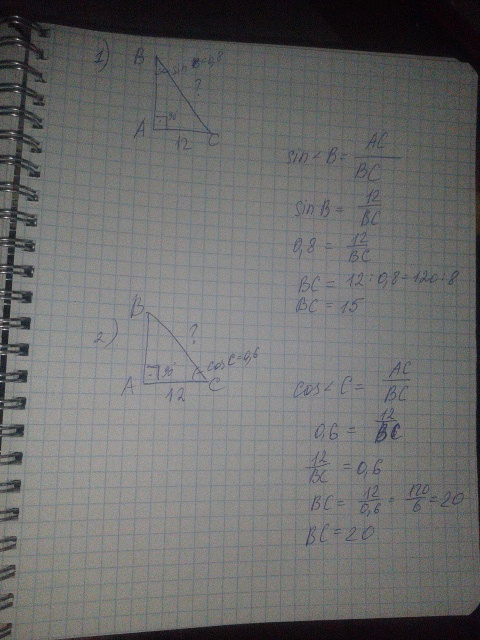 1)
B
sin B=0,8
?
A
90°
12
C
sin∠B = AC/BC
sin B = 12/BC
0,8 = 12/BC
BC = 12:0,8=120:8
BC = 15
2)
B
?
A
90°
cos C=0,6
12
C
cos∠C = AC/BC
0,6 = 12/BC
12/BC = 0,6
BC = 12/0,6 = 120/6 = 20
BC = 20